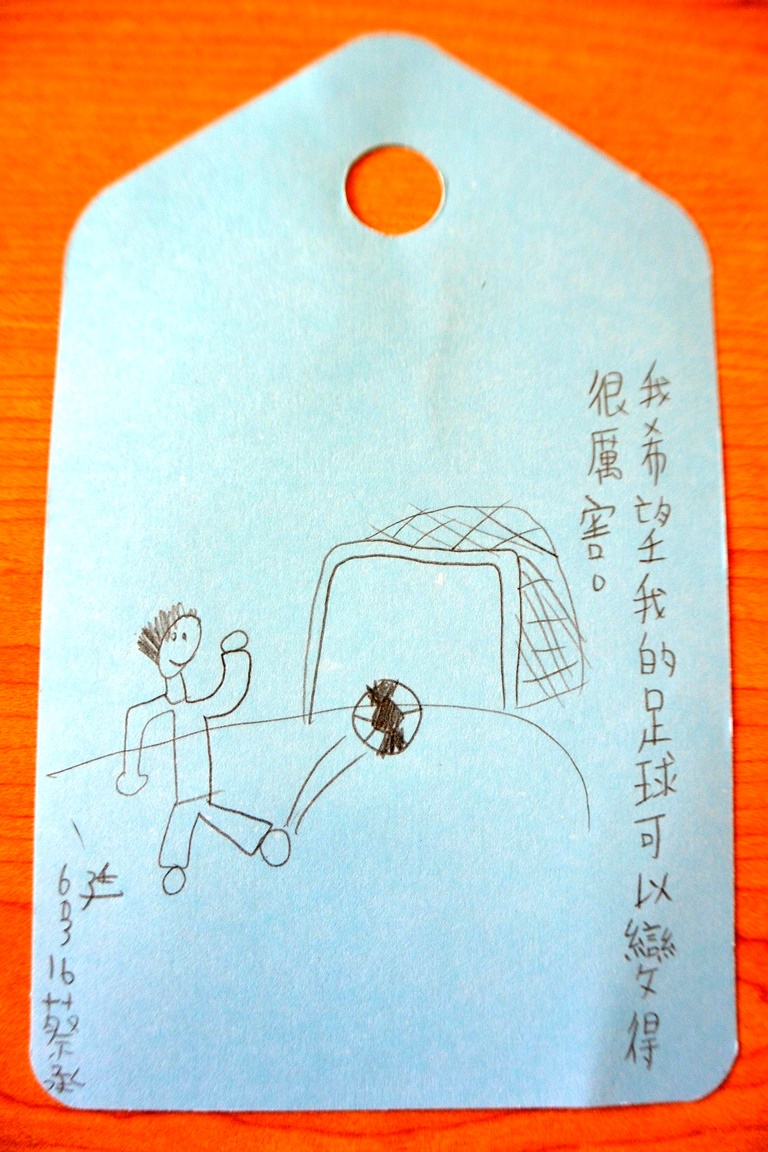 我希望我的足球可以變得
很厲害。
6号16蔡承